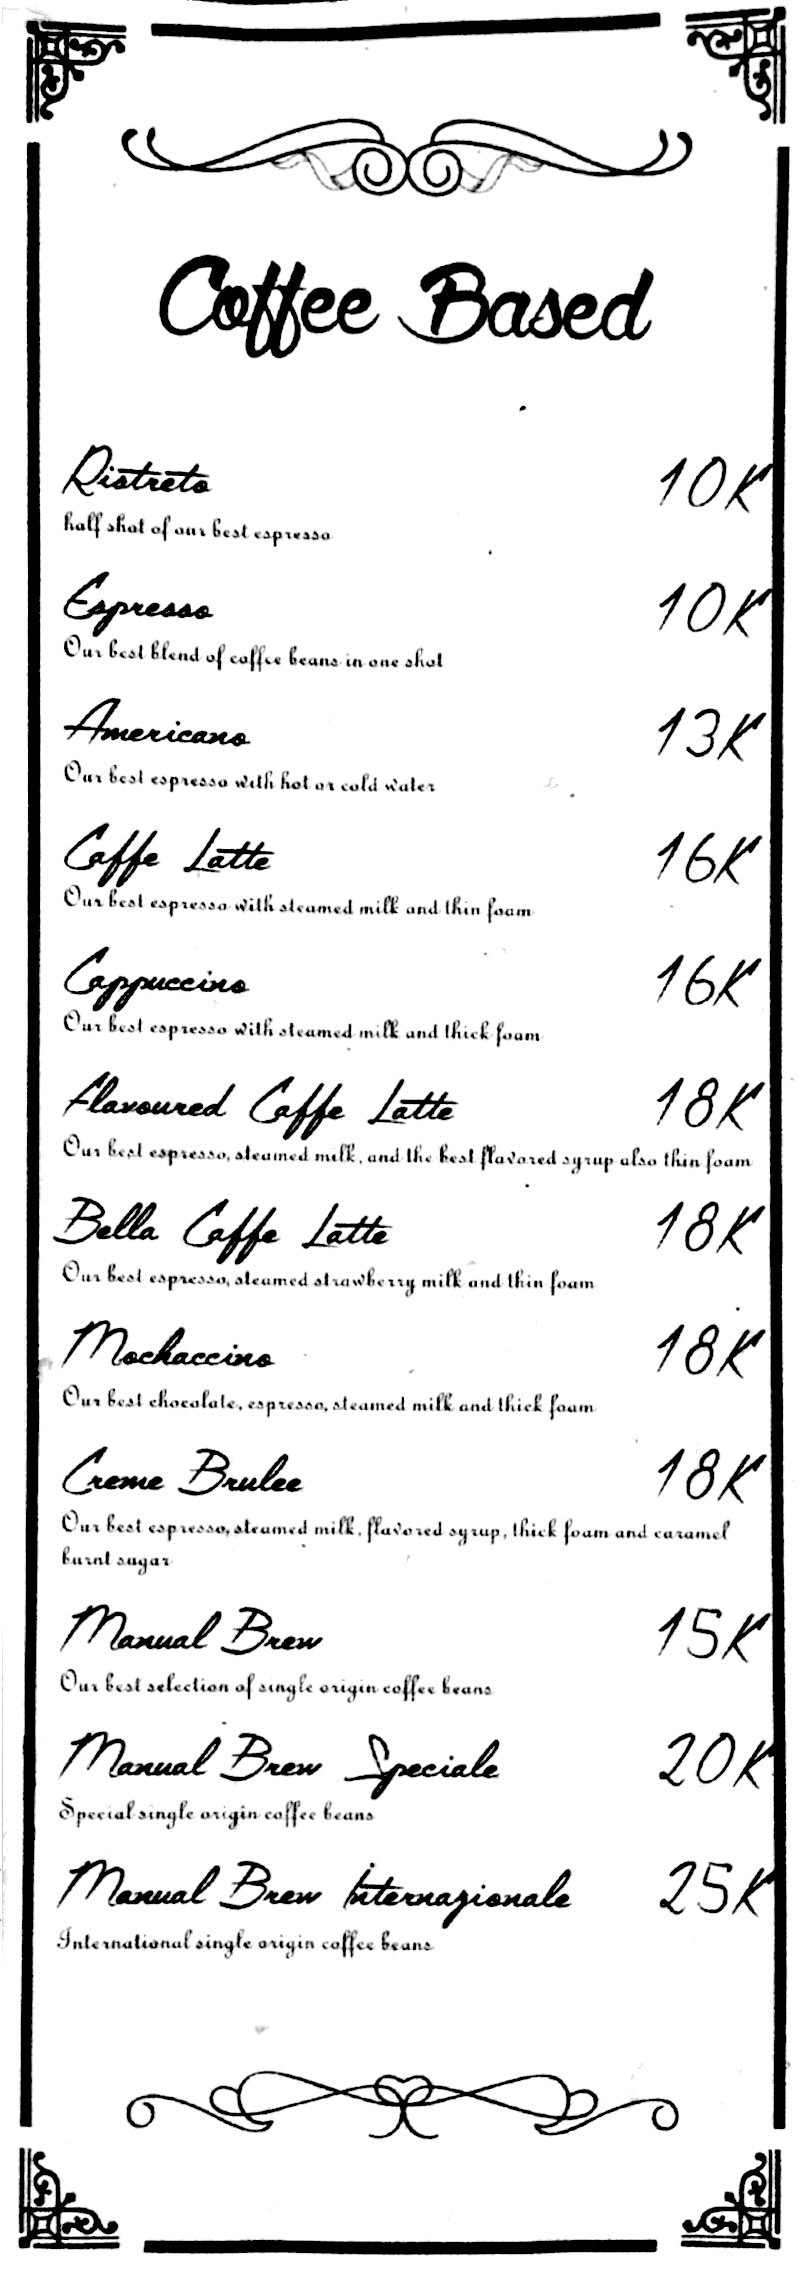 Coffee Based
Ristreto 10K
half shot of our best espresso
Espresso 10K
Our best blend of coffee beans in one shot
Americano 13K
Our best espresso with hot or cold water
Caffe Latte 16K
Our best espresso with steamed milk and thin foam
Cappuccino 16K
Our best espresso with steamed milk and thick foam
Flavoured Caffe Latte 18K
Our best espresso, steamed milk, and the best flavored syrup also thin foam
Bella Caffe Latte 18K
Our best espresso, steamed strawberry milk and thin foam
Mochaccino 18K
Our best chocolate, espresso, steamed milk and thick foam
Creme Brulee 18K
Our best espresso, steamed milk, flavored syrup, thick foam and caramel
burnt sugar
Manual Brew 15K
Our best selection of single origin coffee beans
Manual Brew Speciale 20K
Special single origin coffee beans
Manual Brew Internazionale 25K
International single origin coffee beans